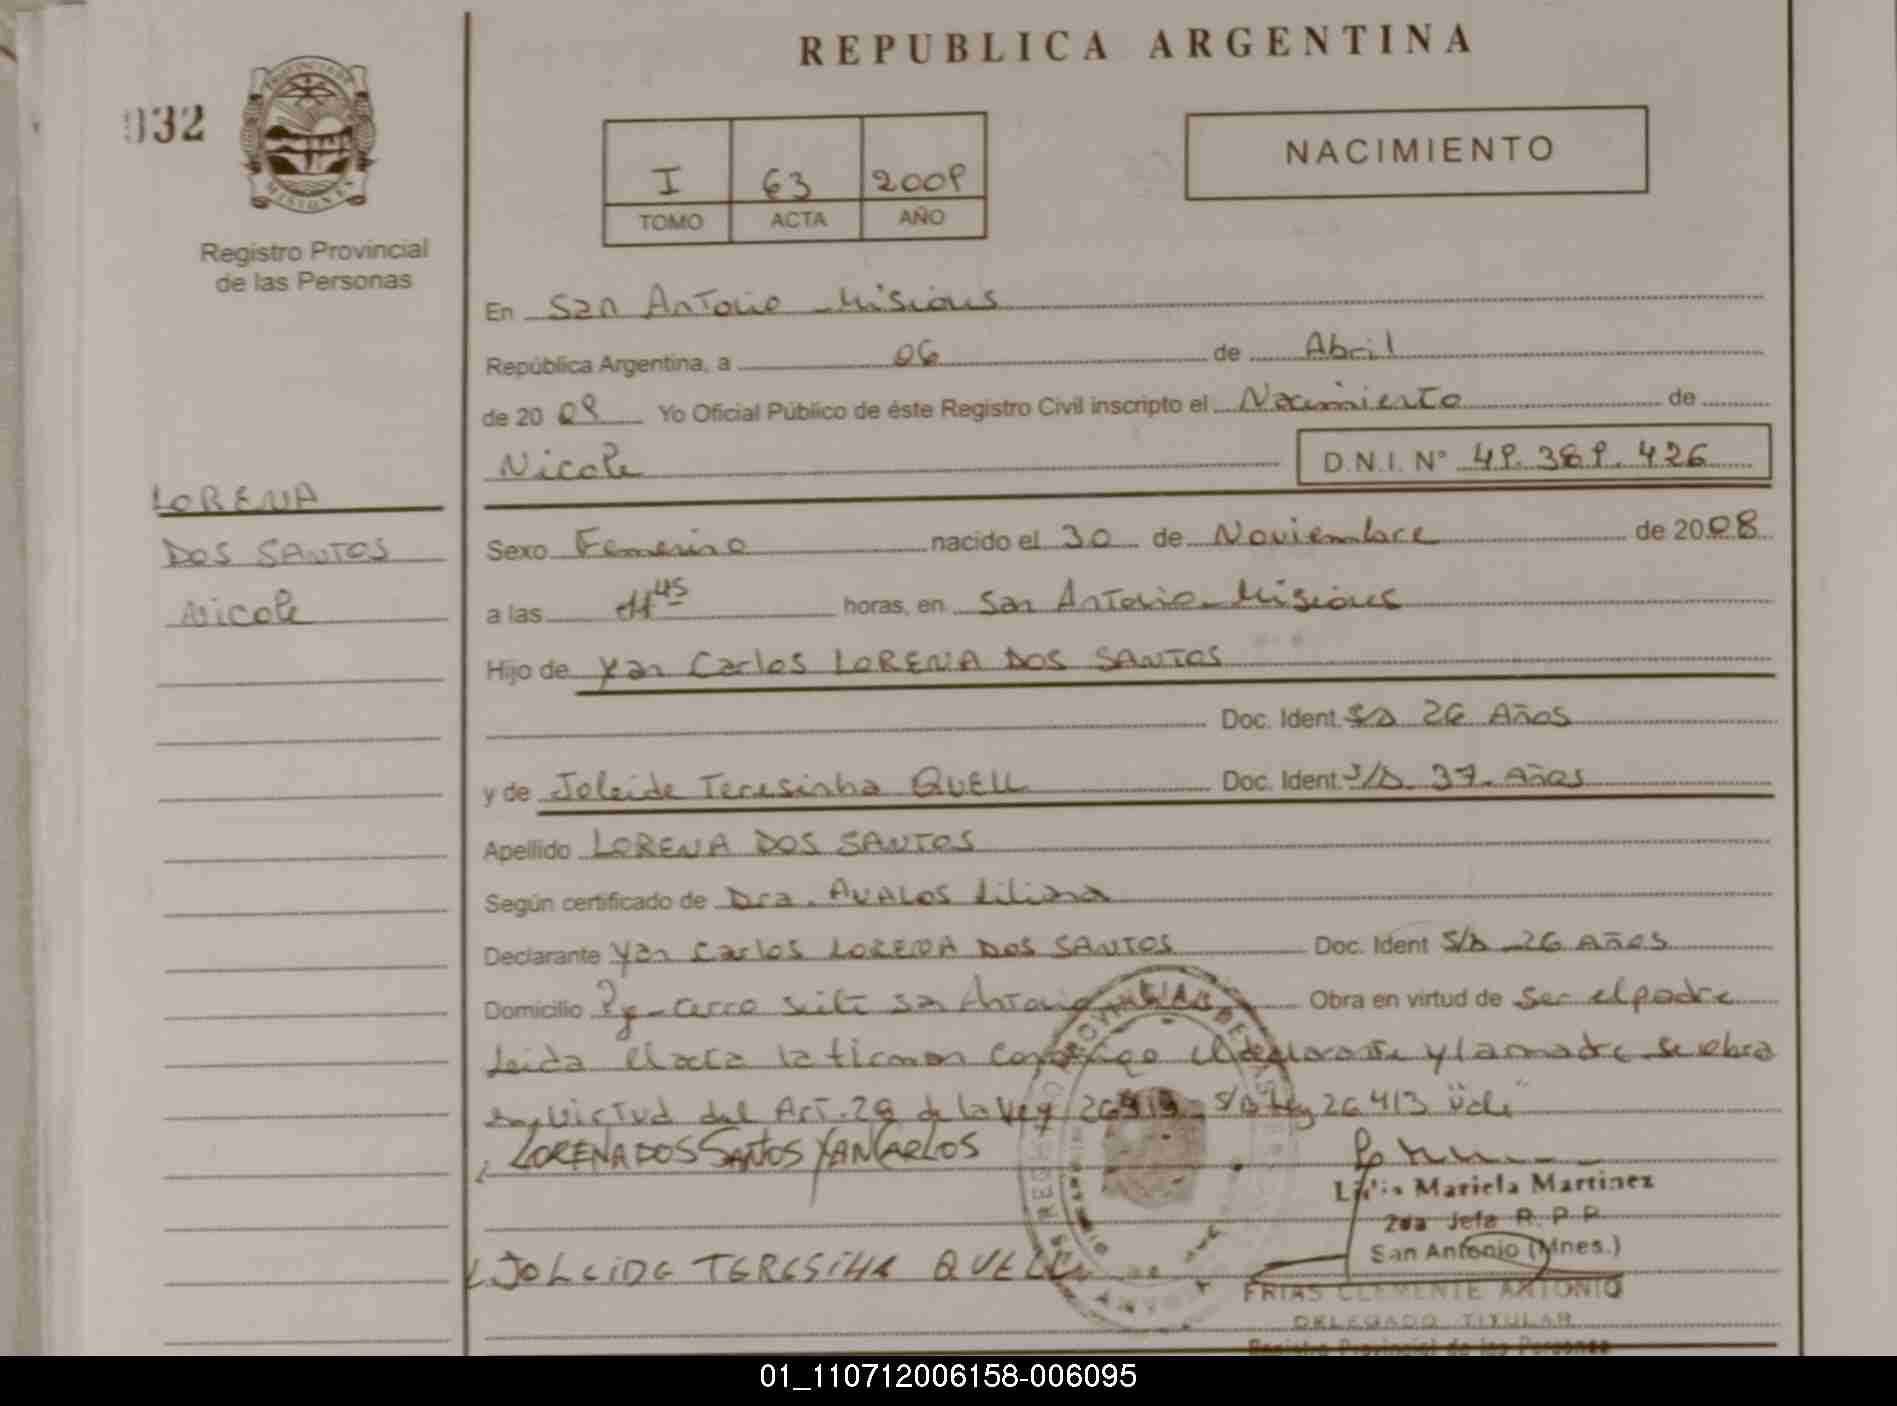 REPUBLICA ARGENTINA
032
PROVINCIA DE
MISIONES
Registro Provincial
de las Personas
I 63 2009
TOMO ACTA AÑO
NACIMIENTO
En San Antonio - Misiones
República Argentina, a 06 de Abril
de 20 09 Yo Oficial Público de éste Registro Civil inscripto el Nacimiento de
Nicole D.N.I. N° 49.389.426
LORENA
DOS SANTOS
Nicole
Sexo Femenino nacido el 30 de Noviembre de 2008
a las 11 45 horas, en San Antonio - Misiones
Hijo de Yan Carlos LORENA DOS SANTOS
Doc. Ident. S/D 26 Años
y de Joleide Teresinha QUELL Doc. Ident. S/D. 37. Años
Apellido LORENA DOS SANTOS
Según certificado de Dra. AVALOS Liliana
Declarante Yan Carlos LORENA DOS SANTOS Doc. Ident S/D 26 AÑOS
Domicilio San Antonio Obra en virtud de Ser el padre
Leida el acta la firman conmigo el declarante y la madre Se obra
en virtud del Art. 29 de la Ley 26413 S/B Ley 26413
LORENA DOS SANTOS YAN CARLOS
Lidia Mariela Martinez
2da Jefa R.P.P.
San Antonio (Mnes.)
JOLEIDE TERESINHA QUELL
FRIAS CLEMENTE ANTONIO
DELEGADO TITULAR
Registro Provincial de las Personas
01_110712006158-006095